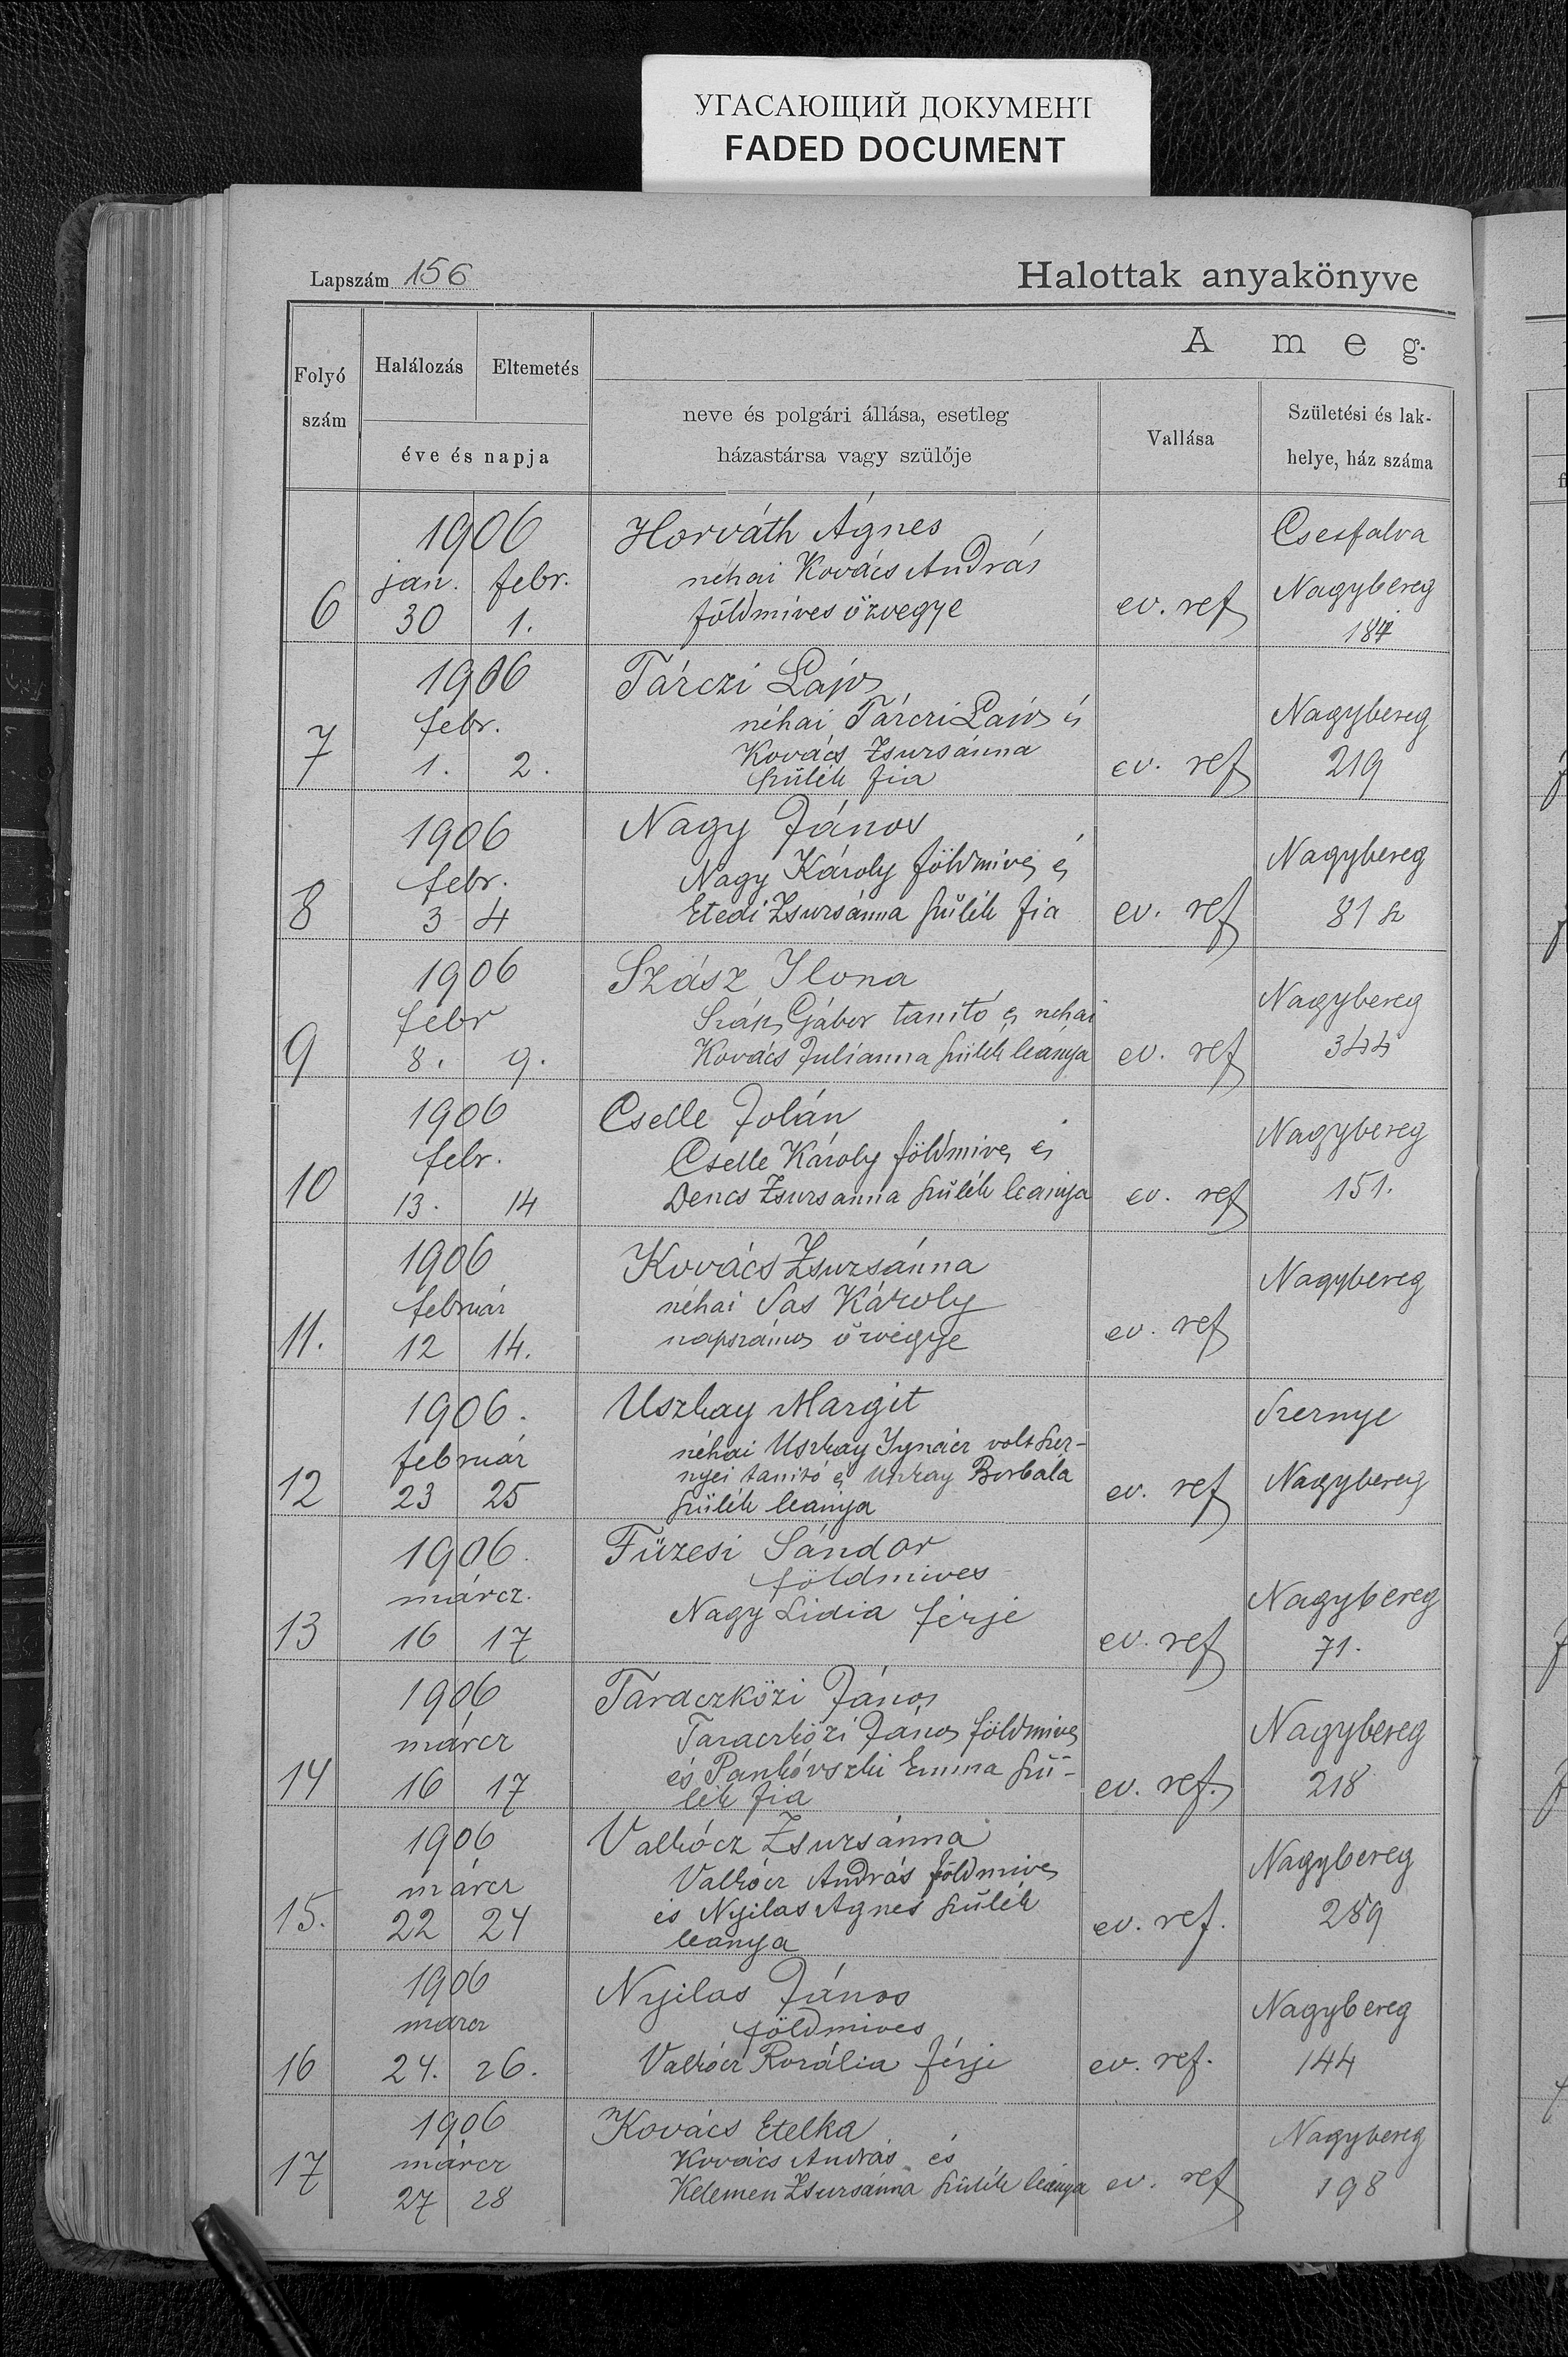 УГАСАЮЩИЙ ДОКУМЕНТ
FADED DOCUMENT
Lapszám 156
Halottak anyakönyve
Folyó szám
Halálozás
Eltemetés
éve és napja
A meg-
neve és polgári állása, esetleg
házastársa vagy szülője
Vallása
Születési és lak-
helye, ház száma
6
1906
jan. febr.
30 1.
Horváth Ágnes
néhai Kovács András
földmives özvegye
ev. ref
Csesfalva
Nagybereg
184
7
1906
febr.
1. 2.
Tárczi Lajos
néhai Tárczi Lajos és
Kovács Zsuzsánna
szülék fia
ev. ref
Nagybereg
219
8
1906
febr.
3 4
Nagy János
Nagy Károly földmives és
Etedi Zsuzsánna szülék fia
ev. ref
Nagybereg
81 sz
9
1906
febr
8. 9.
Szász Ilona
Szász Gábor tanító és nehai
Kovács Julianna szülék leánya
ev. ref
Nagybereg
344
10
1906
febr.
13. 14
Cselle Jolán
Cselle Károly földmives és
Dencs Zsuzsanna szülék leánya
ev. ref
Nagybereg
151.
11.
1906
február
12 14.
Kovács Zsuzsánna
néhai Sas Károly
napszámos özvegye
ev. ref
Nagybereg
12
1906.
február
23 25
Uszkay Margit
néhai Uszkay Ignácz volt szer-
nyei tanitó és Uszkay Borbála
szülék leánya
ev. ref
Szernye
Nagybereg
13
1906.
márcz.
16 17
Füzesi Sándor
földmives
Nagy Lidia férje
ev. ref
Nagybereg
71.
14
1906
márcz
16 17
Taraczközi János
Taraczközi János földmives
és Pankóvszki Emma szü-
lék fia
ev. ref.
Nagybereg
218
15.
1906
márcz
22 24
Valkócz Zsuzsánna
Valkócz András földmives
és Nyilas Ágnes szülék
leanya
ev. ref.
Nagybereg
289
16
1906
marcz
24. 26.
Nyilas János
földmives
Valkócz Rozália férje
ev. ref.
Nagybereg
144
17
1906
márcz
27 28
Kovács Etelka
Kovács András és
Kelemen Zsuzsánna szülék leánya
ev. ref
Nagybereg
198